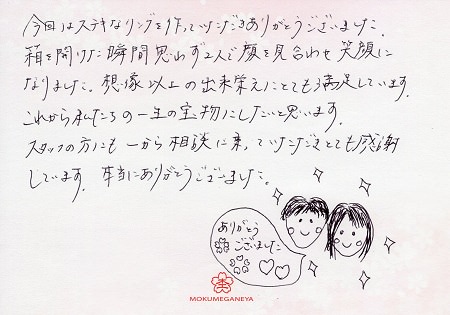 今回はステキなリングを作っていただきありがとうございました。
箱を開けた瞬間思わず2人で顔を見合わせ笑顔に
なりました。想像以上の出来栄えにとても満足しています。
これから私たちの一生の宝物にしたいと思います。
スタッフの方にも一から相談に乗っていただきとても感謝
しています。本当にありがとうございました。
ありがとう
ございました
MOKUMEGANEYA